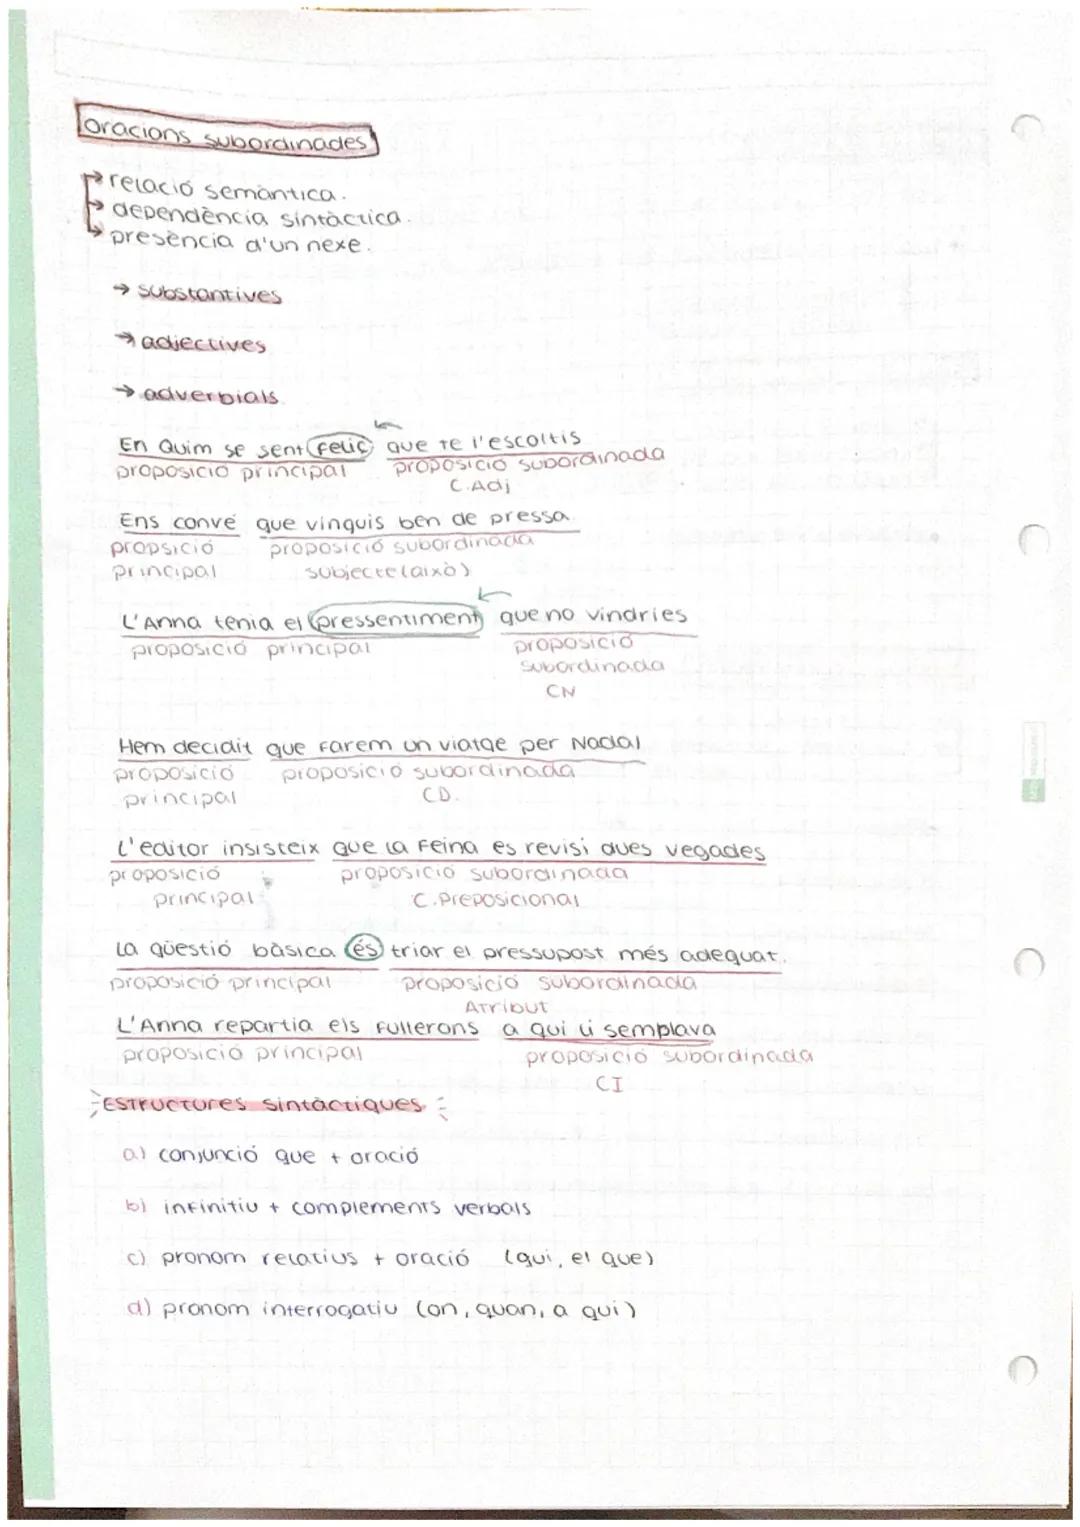 oracions subordinades
→ relació semàntica.
→ dependència sintàctica.
→ presència d'un nexe.
→ substantives
→ adjectives
→ adverbials
En Quim se sent feliç que te l'escoltis
proposició principal proposició subordinada
C.Adj
Ens convé que vinguis ben de pressa.
propsició proposició subordinada
principal subjecte (això)
L'Anna tenia el pressentiment que no vindries
proposició principal proposició
subordinada
CN
Hem decidit que farem un viatge per Nadal
proposició proposició subordinada
principal CD.
L'editor insisteix que la feina es revisi dues vegades
proposició proposició subordinada
principal C.Preposicional
La qüestió bàsica és triar el pressupost més adequat.
proposició principal proposició subordinada
Atribut
L'Anna repartia els fullerons a qui li semplava
proposició principal proposició subordinada
CI
Estructures sintàctiques
a) conjunció que + oració
b) infinitiu + complements verbals
c) pronom relatius + oració (qui, el que)
d) pronom interrogatiu (on, quan, a qui)